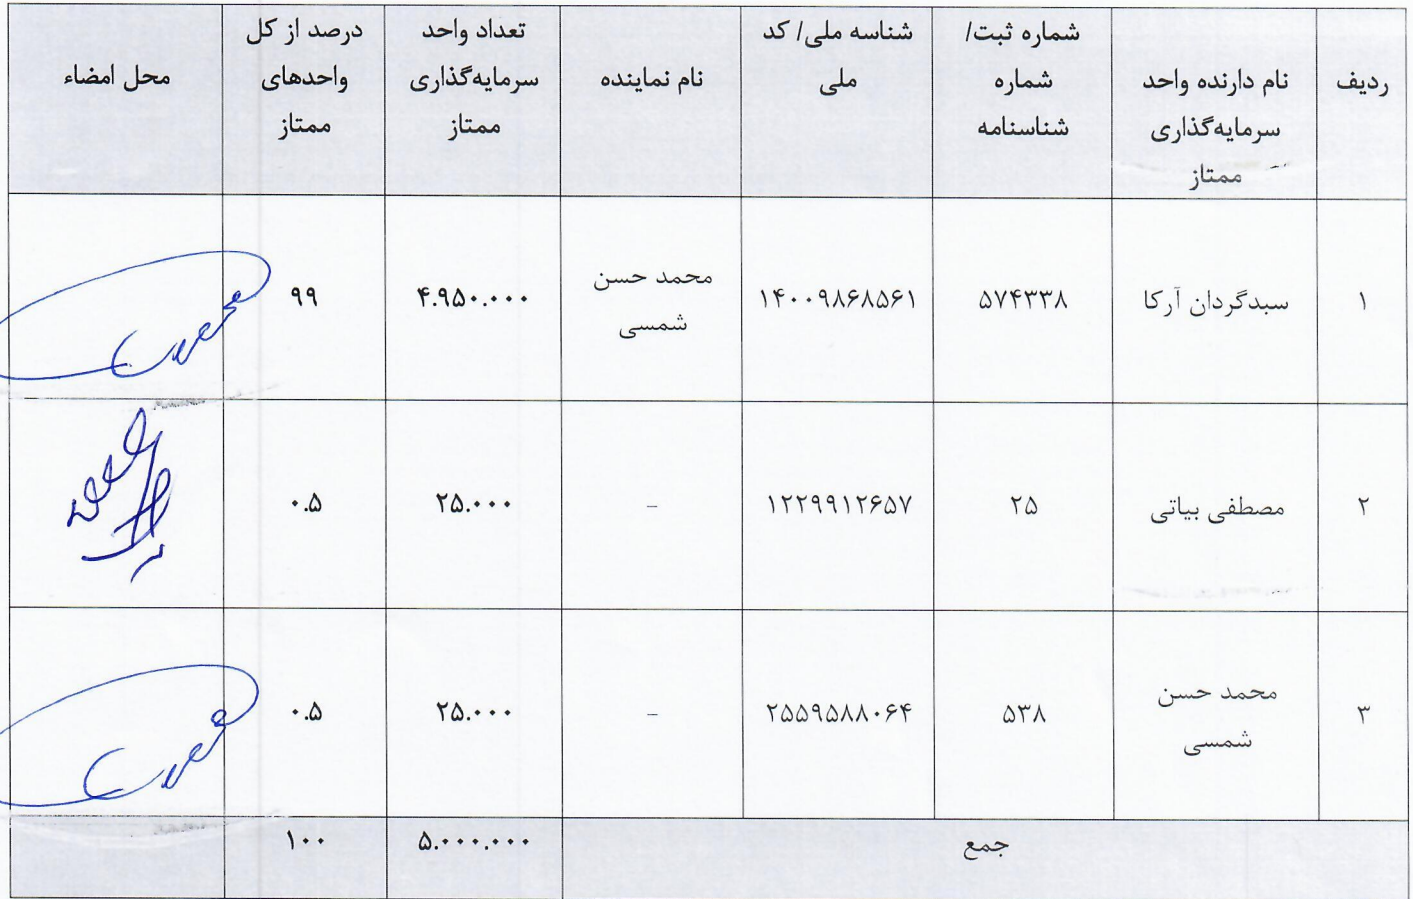 ردیف
نام دارنده واحد
سرمایه‌گذاری
ممتاز
شماره ثبت/
شماره
شناسنامه
شناسه ملی/ کد
ملی
نام نماینده
تعداد واحد
سرمایه‌گذاری
ممتاز
درصد از کل
واحدهای
ممتاز
محل امضاء
۱
سبدگردان آرکا
۵۷۴۳۳۸
۱۴۰۰۹۸۶۸۵۶۱
محمد حسن
شمسی
۴.۹۵۰.۰۰۰
۹۹
۲
مصطفی بیاتی
۲۵
۱۲۲۹۹۱۲۶۵۷
-
۲۵.۰۰۰
۰.۵
۳
محمد حسن
شمسی
۵۳۸
۲۵۵۹۵۸۸۰۶۴
-
۲۵.۰۰۰
۰.۵
جمع
۵.۰۰۰.۰۰۰
۱۰۰